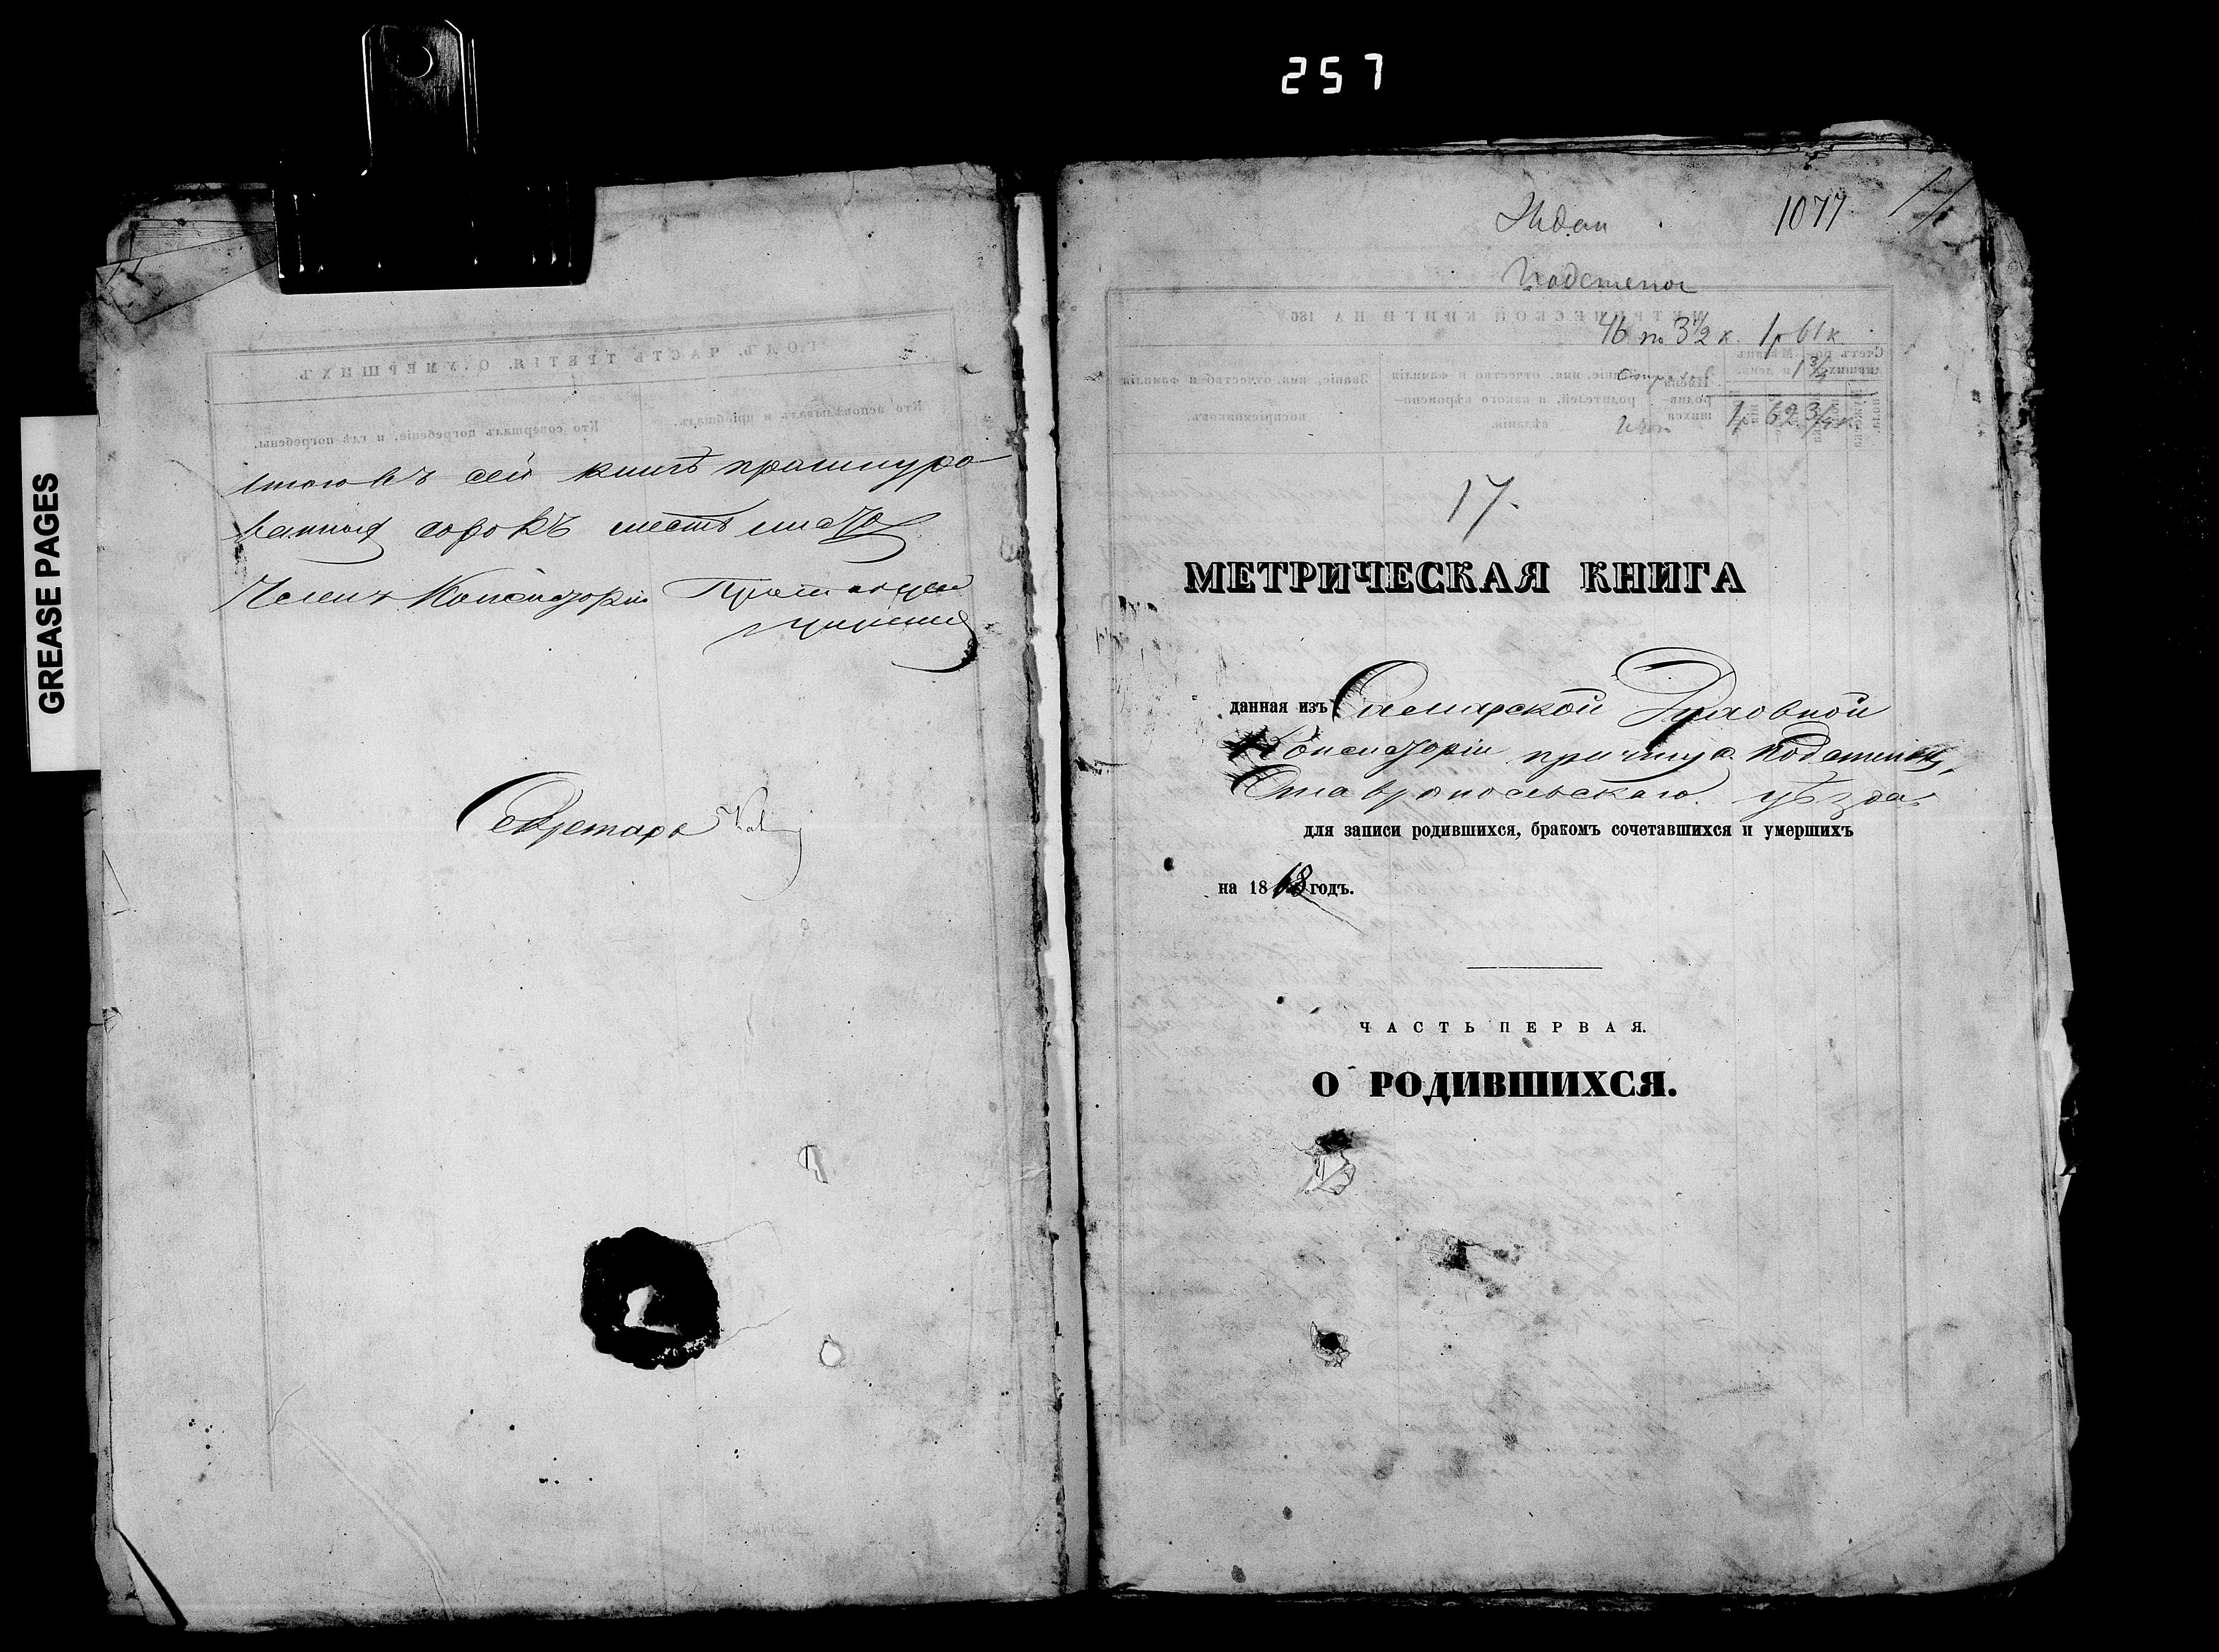 257
GREASE PAGES
Итого въ сей книгѣ прошнуро
ванныхъ сорокъ шесть листовъ
Членъ Консисторіи Протоіерей
Секретарь
1077
46 по 3½ к. 1р 61 к.
1¾
1р 62¾ к
17.
МЕТРИЧЕСКАЯ КНИГА
данная изъ Самарской Духовной
Консисторіи причту с. Подстепокъ,
Ставропольскаго уѣзда
для записи родившихся, бракомъ сочетавшихся и умершихъ
на 1868 годъ.
ЧАСТЬ ПЕРВАЯ.
О РОДИВШИХСЯ.